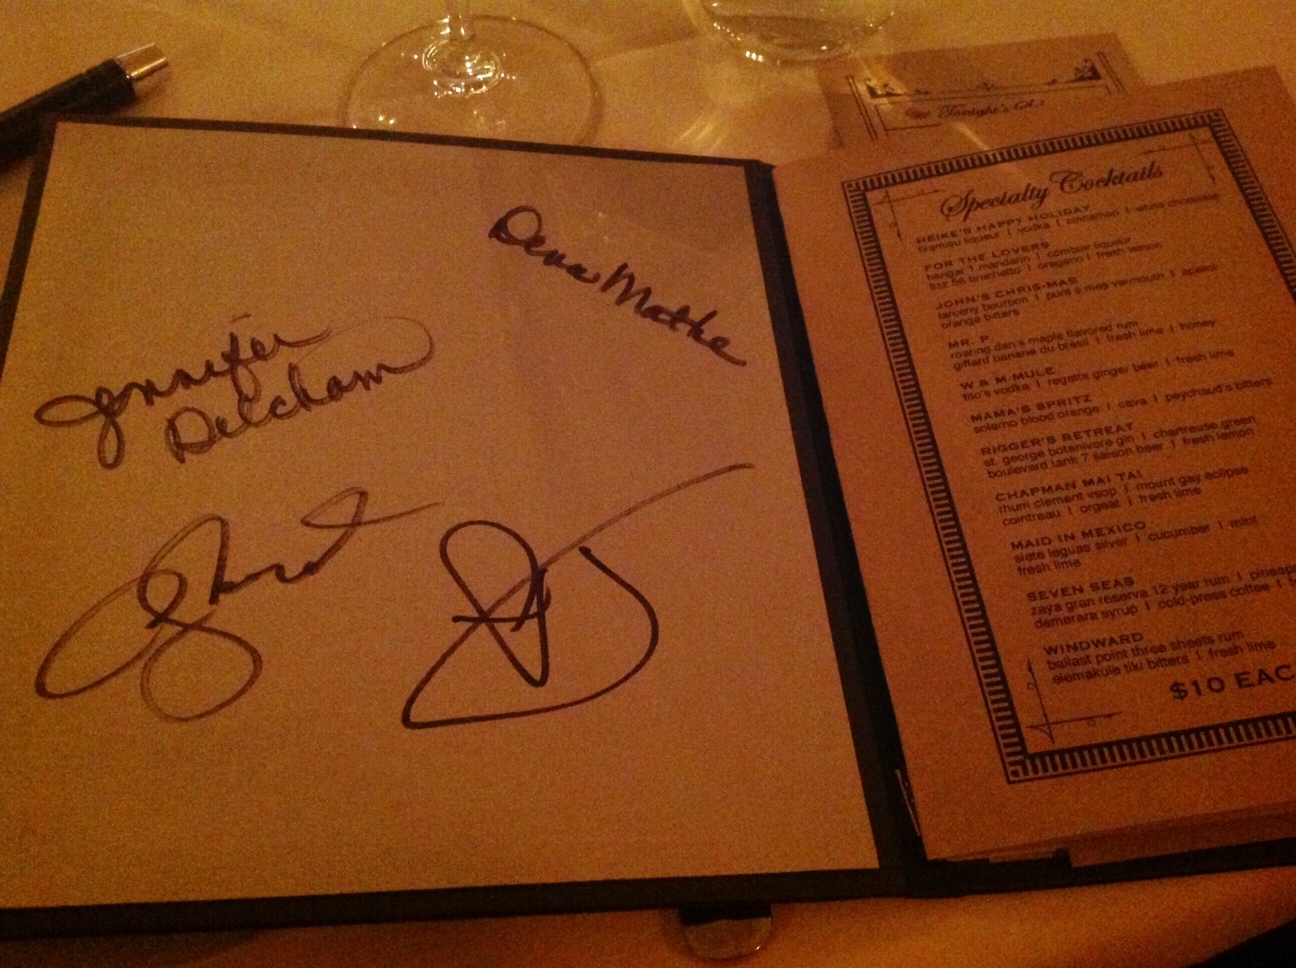 Dena Mathe
Jennifer
Delcham
Tonight's
Specialty Cocktails
HEIKE'S HAPPY HOLIDAY
tiramisu liqueur | vodka | cinnamon | white chocolate
FOR THE LOVERS
hangar 1 mandarin | combier liqueur
fitz 56 brachetto | oregano | fresh lemon
JOHN'S CHRIS-MAS
tarceny bourbon | punt e mes vermouth | aperol
orange bitters
MR. P
roaring dan's maple flavored rum
giffard banane du brésil | fresh lime | honey
W & M MULE
tito's vodka | regatta ginger beer | fresh lime
MAMA'S SPRITZ
solerno blood orange | cava | peychaud's bitters
RIGGER'S RETREAT
st. george botanivore gin | chartreuse green
boulevard tank 7 saison beer | fresh lemon
CHAPMAN MAI TAI
rhum clement vsop | mount gay eclipse
cointreau | orgeat | fresh lime
MAID IN MEXICO
siete leguas silver | cucumber | mint
fresh lime
SEVEN SEAS
zaya gran reserva 12 year rum | pineap
demerara syrup | cold-press coffee |
WINDWARD
ballast point three sheets rum
elemakule tiki bitters | fresh lime
$10 EAC